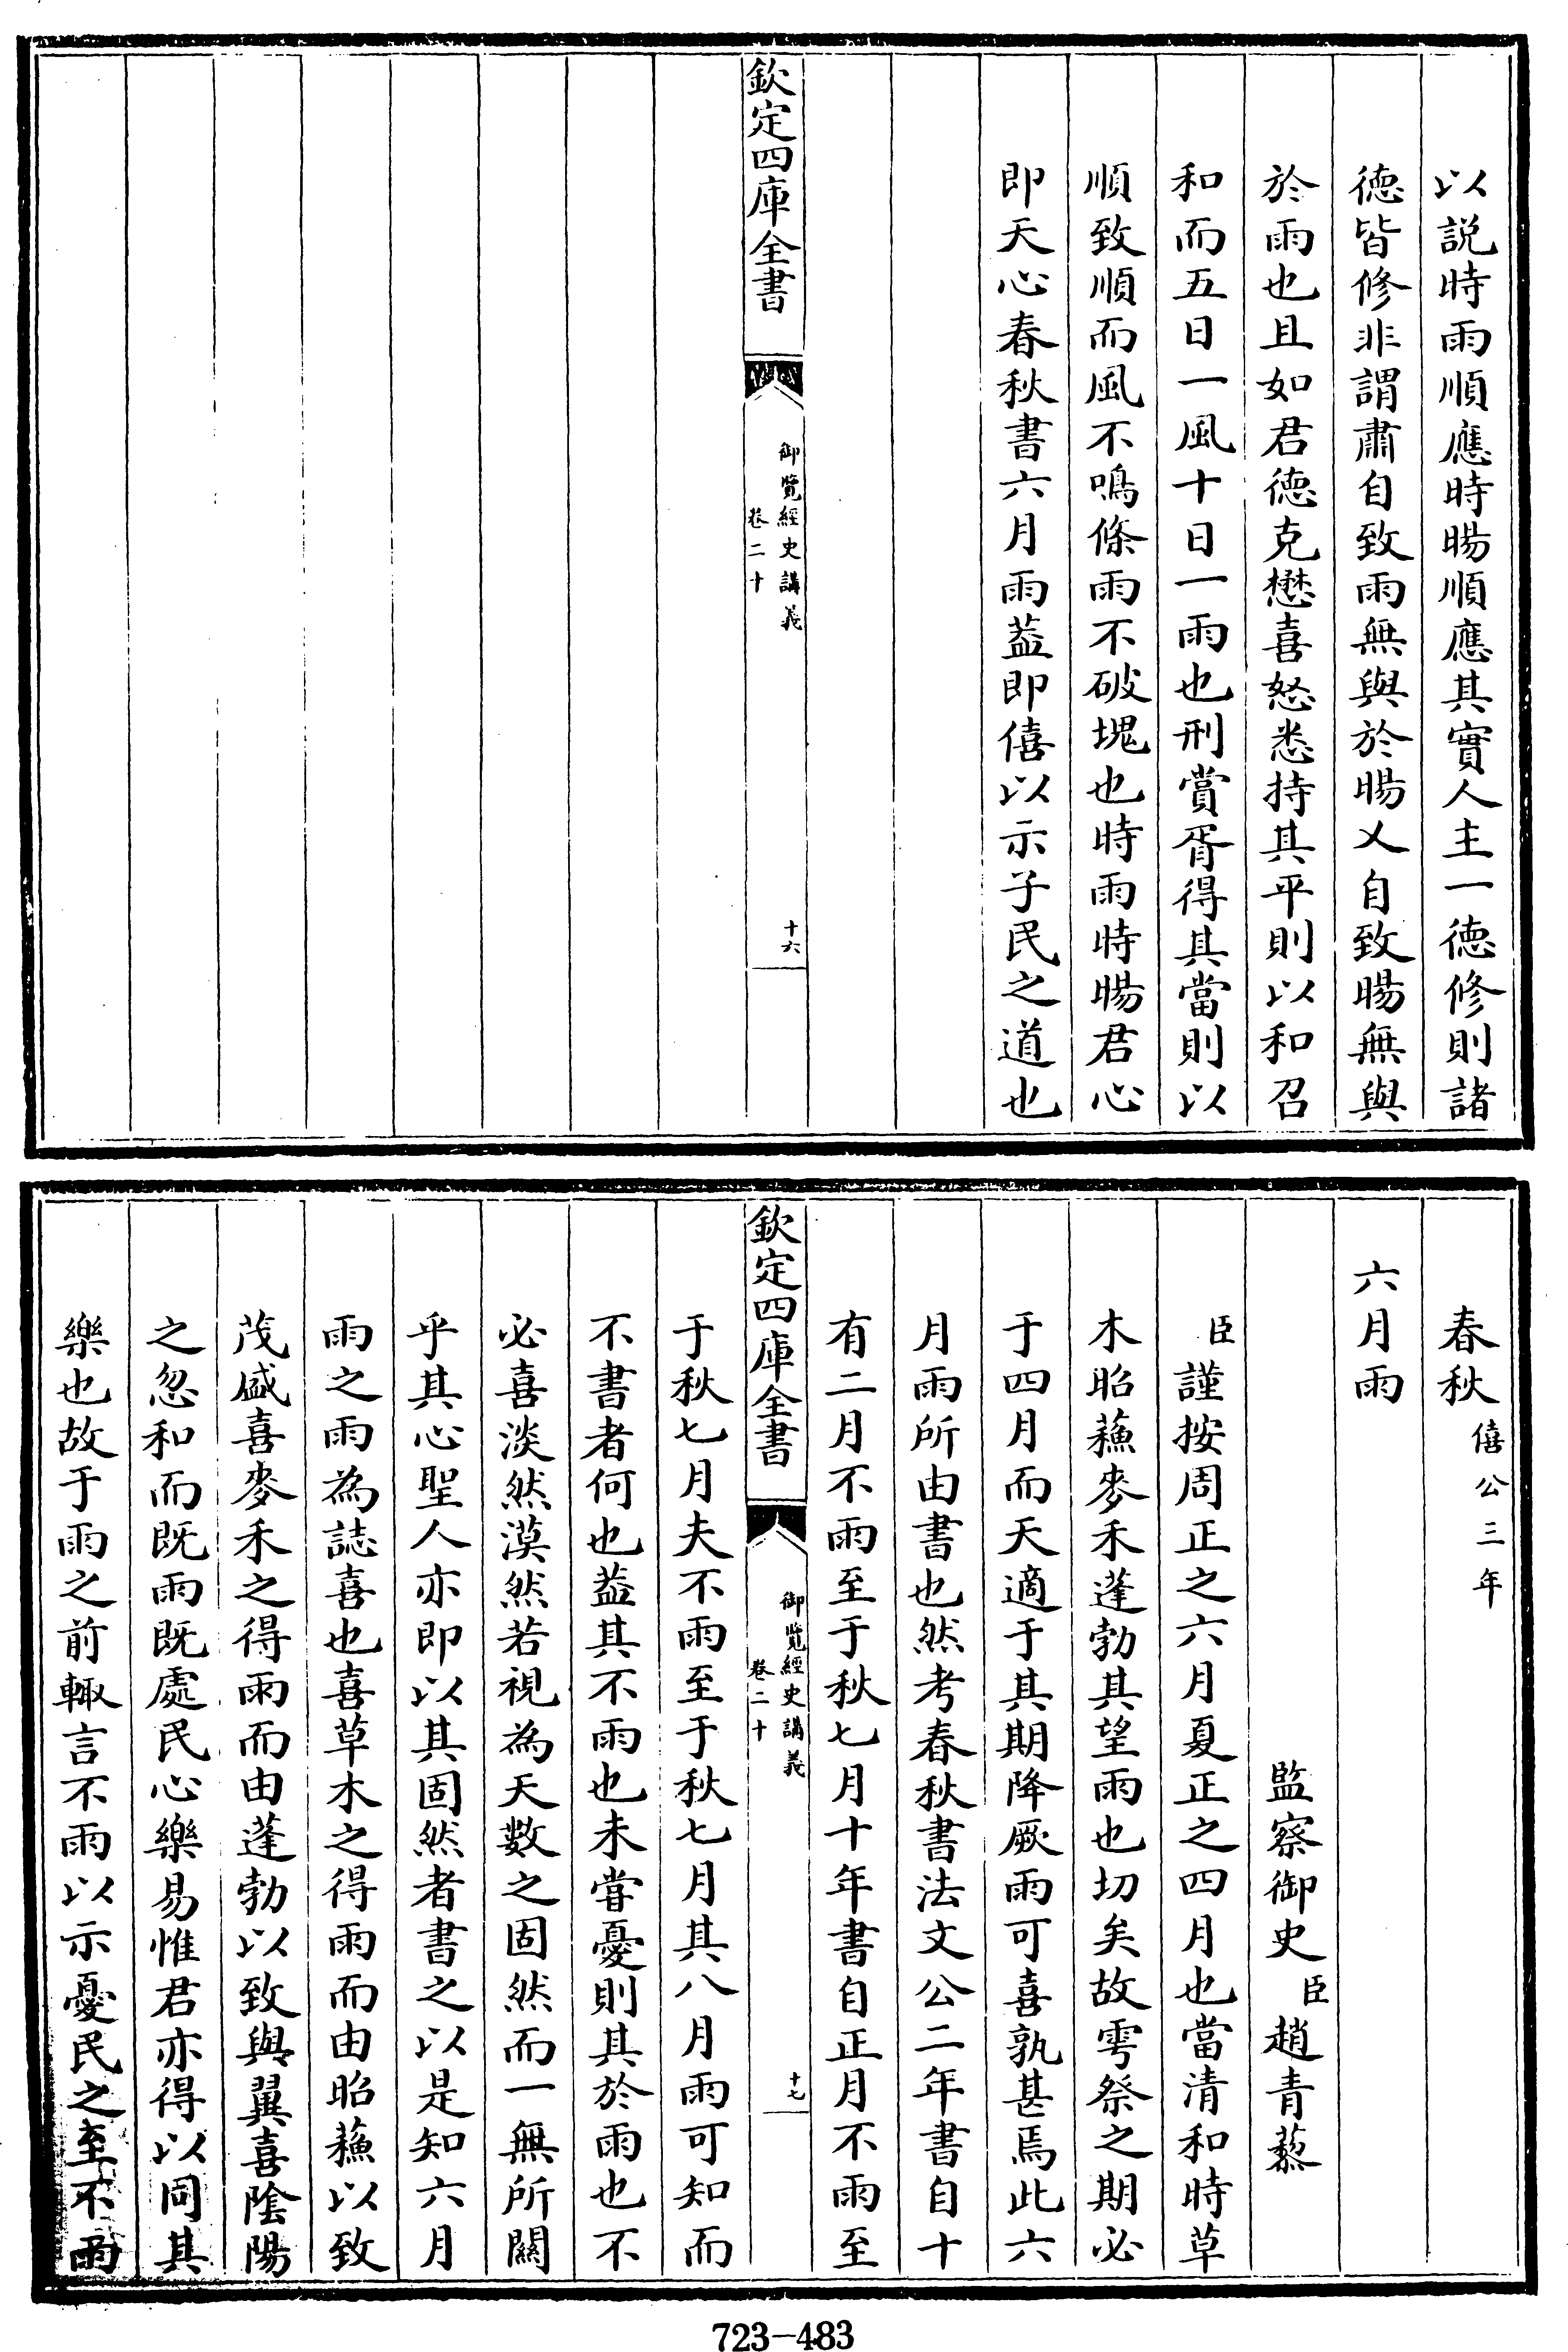 以説時雨順應時暘順應其實人主一德修則諸
德皆修非謂肅自致雨無與於暘乂自致暘無與
於雨也且如君德克懋喜怒悉持其平則以和召
和而五日一風十日一雨也刑賞胥得其當則以
順致順而風不鳴條雨不破塊也時雨時暘君心
即天心春秋書六月雨葢即僖以示子民之道也
欽定四庫全書
御覽經史講義
卷二十
十六
春秋僖公三年
六月雨
監察御史臣趙青藜
臣謹按周正之六月夏正之四月也當清和時草
木昭蘓麥禾蓬勃其望雨也切矣故雩祭之期必
于四月而天適于其期降厥雨可喜孰甚焉此六
月雨所由書也然考春秋書法文公二年書自十
有二月不雨至于秋七月十年書自正月不雨至
欽定四庫全書
御覽經史講義
卷二十
十七
于秋七月夫不雨至于秋七月其八月雨可知而
不書者何也葢其不雨也未甞憂則其於雨也不
必喜淡然漠然若視為天數之固然而一無所關
乎其心聖人亦即以其固然者書之以是知六月
雨之雨為誌喜也喜草木之得雨而由昭蘓以致
茂盛喜麥禾之得雨而由蓬勃以致與翼喜陰陽
之忽和而既雨既處民心樂易惟君亦得以同其
樂也故于雨之前輙言不雨以示憂民之至不雨
723-483